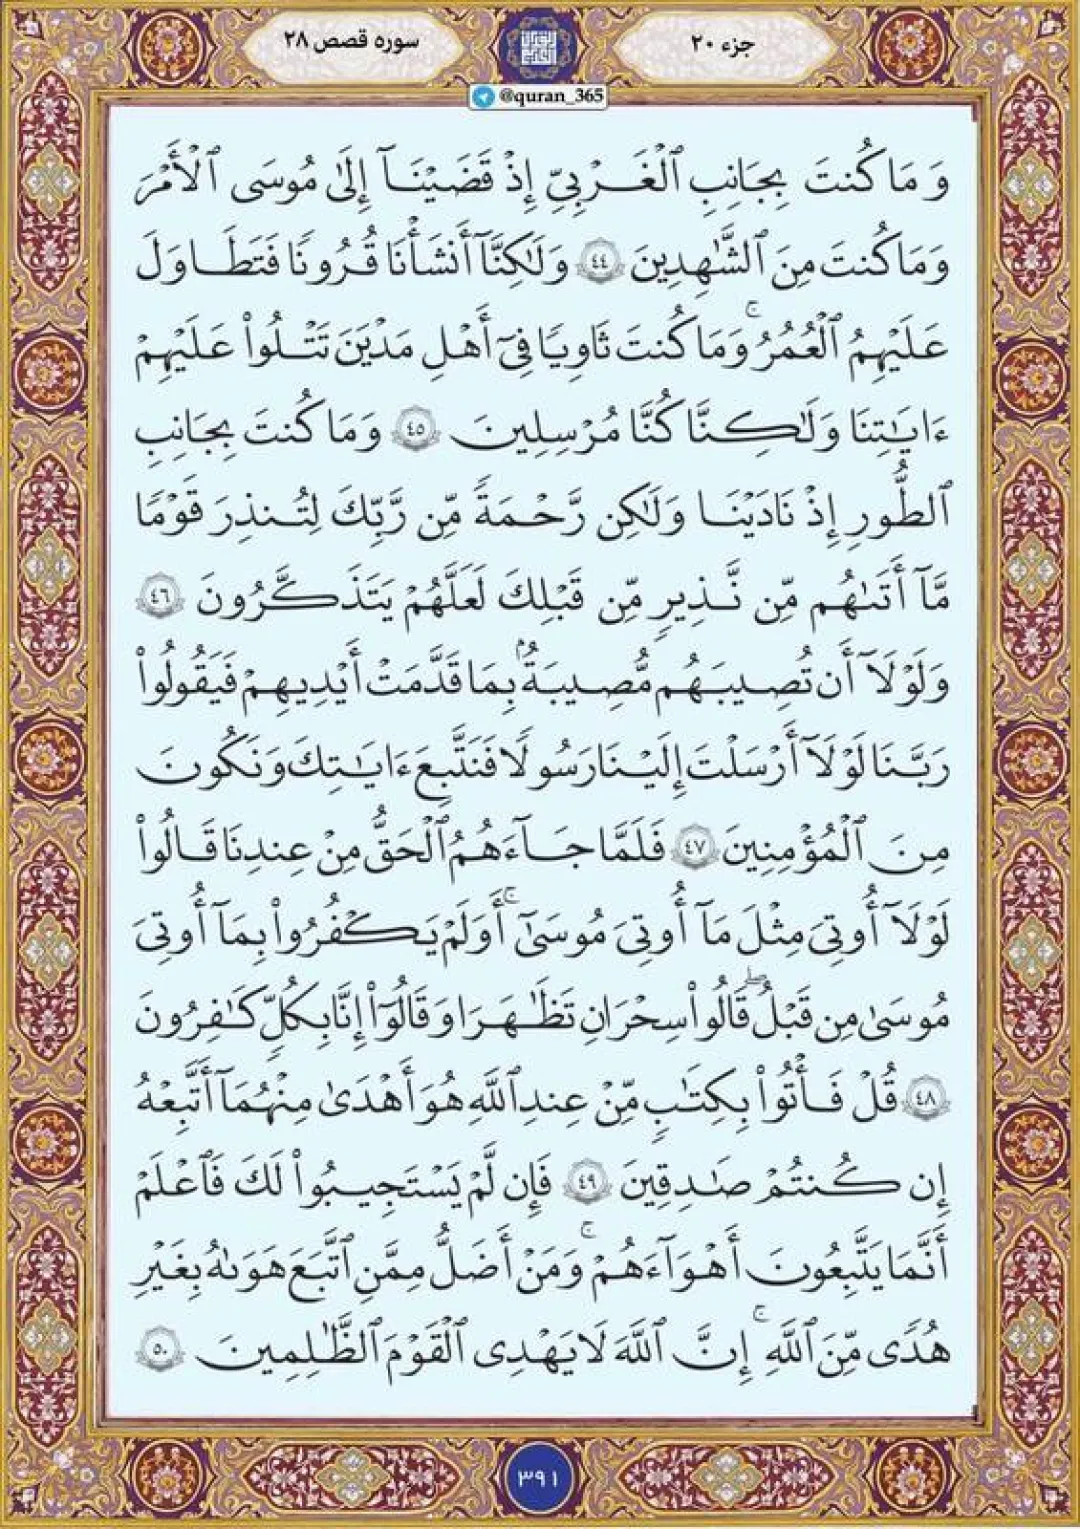 جزء ۲۰
سوره قصص ۲۸
@quran_365
وَمَا كُنتَ بِجَانِبِ ٱلْغَرْبِيِّ إِذْ قَضَيْنَآ إِلَىٰ مُوسَى ٱلْأَمْرَ
وَمَا كُنتَ مِنَ ٱلشَّٰهِدِينَ ٤٤ وَلَٰكِنَّآ أَنشَأْنَا قُرُونًا فَتَطَاوَلَ
عَلَيْهِمُ ٱلْعُمُرُ ۚ وَمَا كُنتَ ثَاوِيًا فِىٓ أَهْلِ مَدْيَنَ تَتْلُوا۟ عَلَيْهِمْ
ءَايَٰتِنَا وَلَٰكِنَّا كُنَّا مُرْسِلِينَ ٤٥ وَمَا كُنتَ بِجَانِبِ
ٱلطُّورِ إِذْ نَادَيْنَا وَلَٰكِن رَّحْمَةً مِّن رَّبِّكَ لِتُنذِرَ قَوْمًا
مَّآ أَتَىٰهُم مِّن نَّذِيرٍ مِّن قَبْلِكَ لَعَلَّهُمْ يَتَذَكَّرُونَ ٤٦
وَلَوْلَآ أَن تُصِيبَهُم مُّصِيبَةٌۢ بِمَا قَدَّمَتْ أَيْدِيهِمْ فَيَقُولُوا۟
رَبَّنَا لَوْلَآ أَرْسَلْتَ إِلَيْنَا رَسُولًا فَنَتَّبِعَ ءَايَٰتِكَ وَنَكُونَ
مِنَ ٱلْمُؤْمِنِينَ ٤٧ فَلَمَّا جَآءَهُمُ ٱلْحَقُّ مِنْ عِندِنَا قَالُوا۟
لَوْلَآ أُوتِىَ مِثْلَ مَآ أُوتِىَ مُوسَىٰٓ ۚ أَوَلَمْ يَكْفُرُوا۟ بِمَآ أُوتِىَ
مُوسَىٰ مِن قَبْلُ ۖ قَالُوا۟ سِحْرَانِ تَظَٰهَرَا وَقَالُوٓا۟ إِنَّا بِكُلٍّ كَٰفِرُونَ
٤٨ قُلْ فَأْتُوا۟ بِكِتَٰبٍ مِّنْ عِندِ ٱللَّهِ هُوَ أَهْدَىٰ مِنْهُمَآ أَتَّبِعْهُ
إِن كُنتُمْ صَٰدِقِينَ ٤٩ فَإِن لَّمْ يَسْتَجِيبُوا۟ لَكَ فَٱعْلَمْ
أَنَّمَا يَتَّبِعُونَ أَهْوَآءَهُمْ ۚ وَمَنْ أَضَلُّ مِمَّنِ ٱتَّبَعَ هَوَىٰهُ بِغَيْرِ
هُدًى مِّنَ ٱللَّهِ ۚ إِنَّ ٱللَّهَ لَا يَهْدِى ٱلْقَوْمَ ٱلظَّٰلِمِينَ ٥٠
۳۹۱